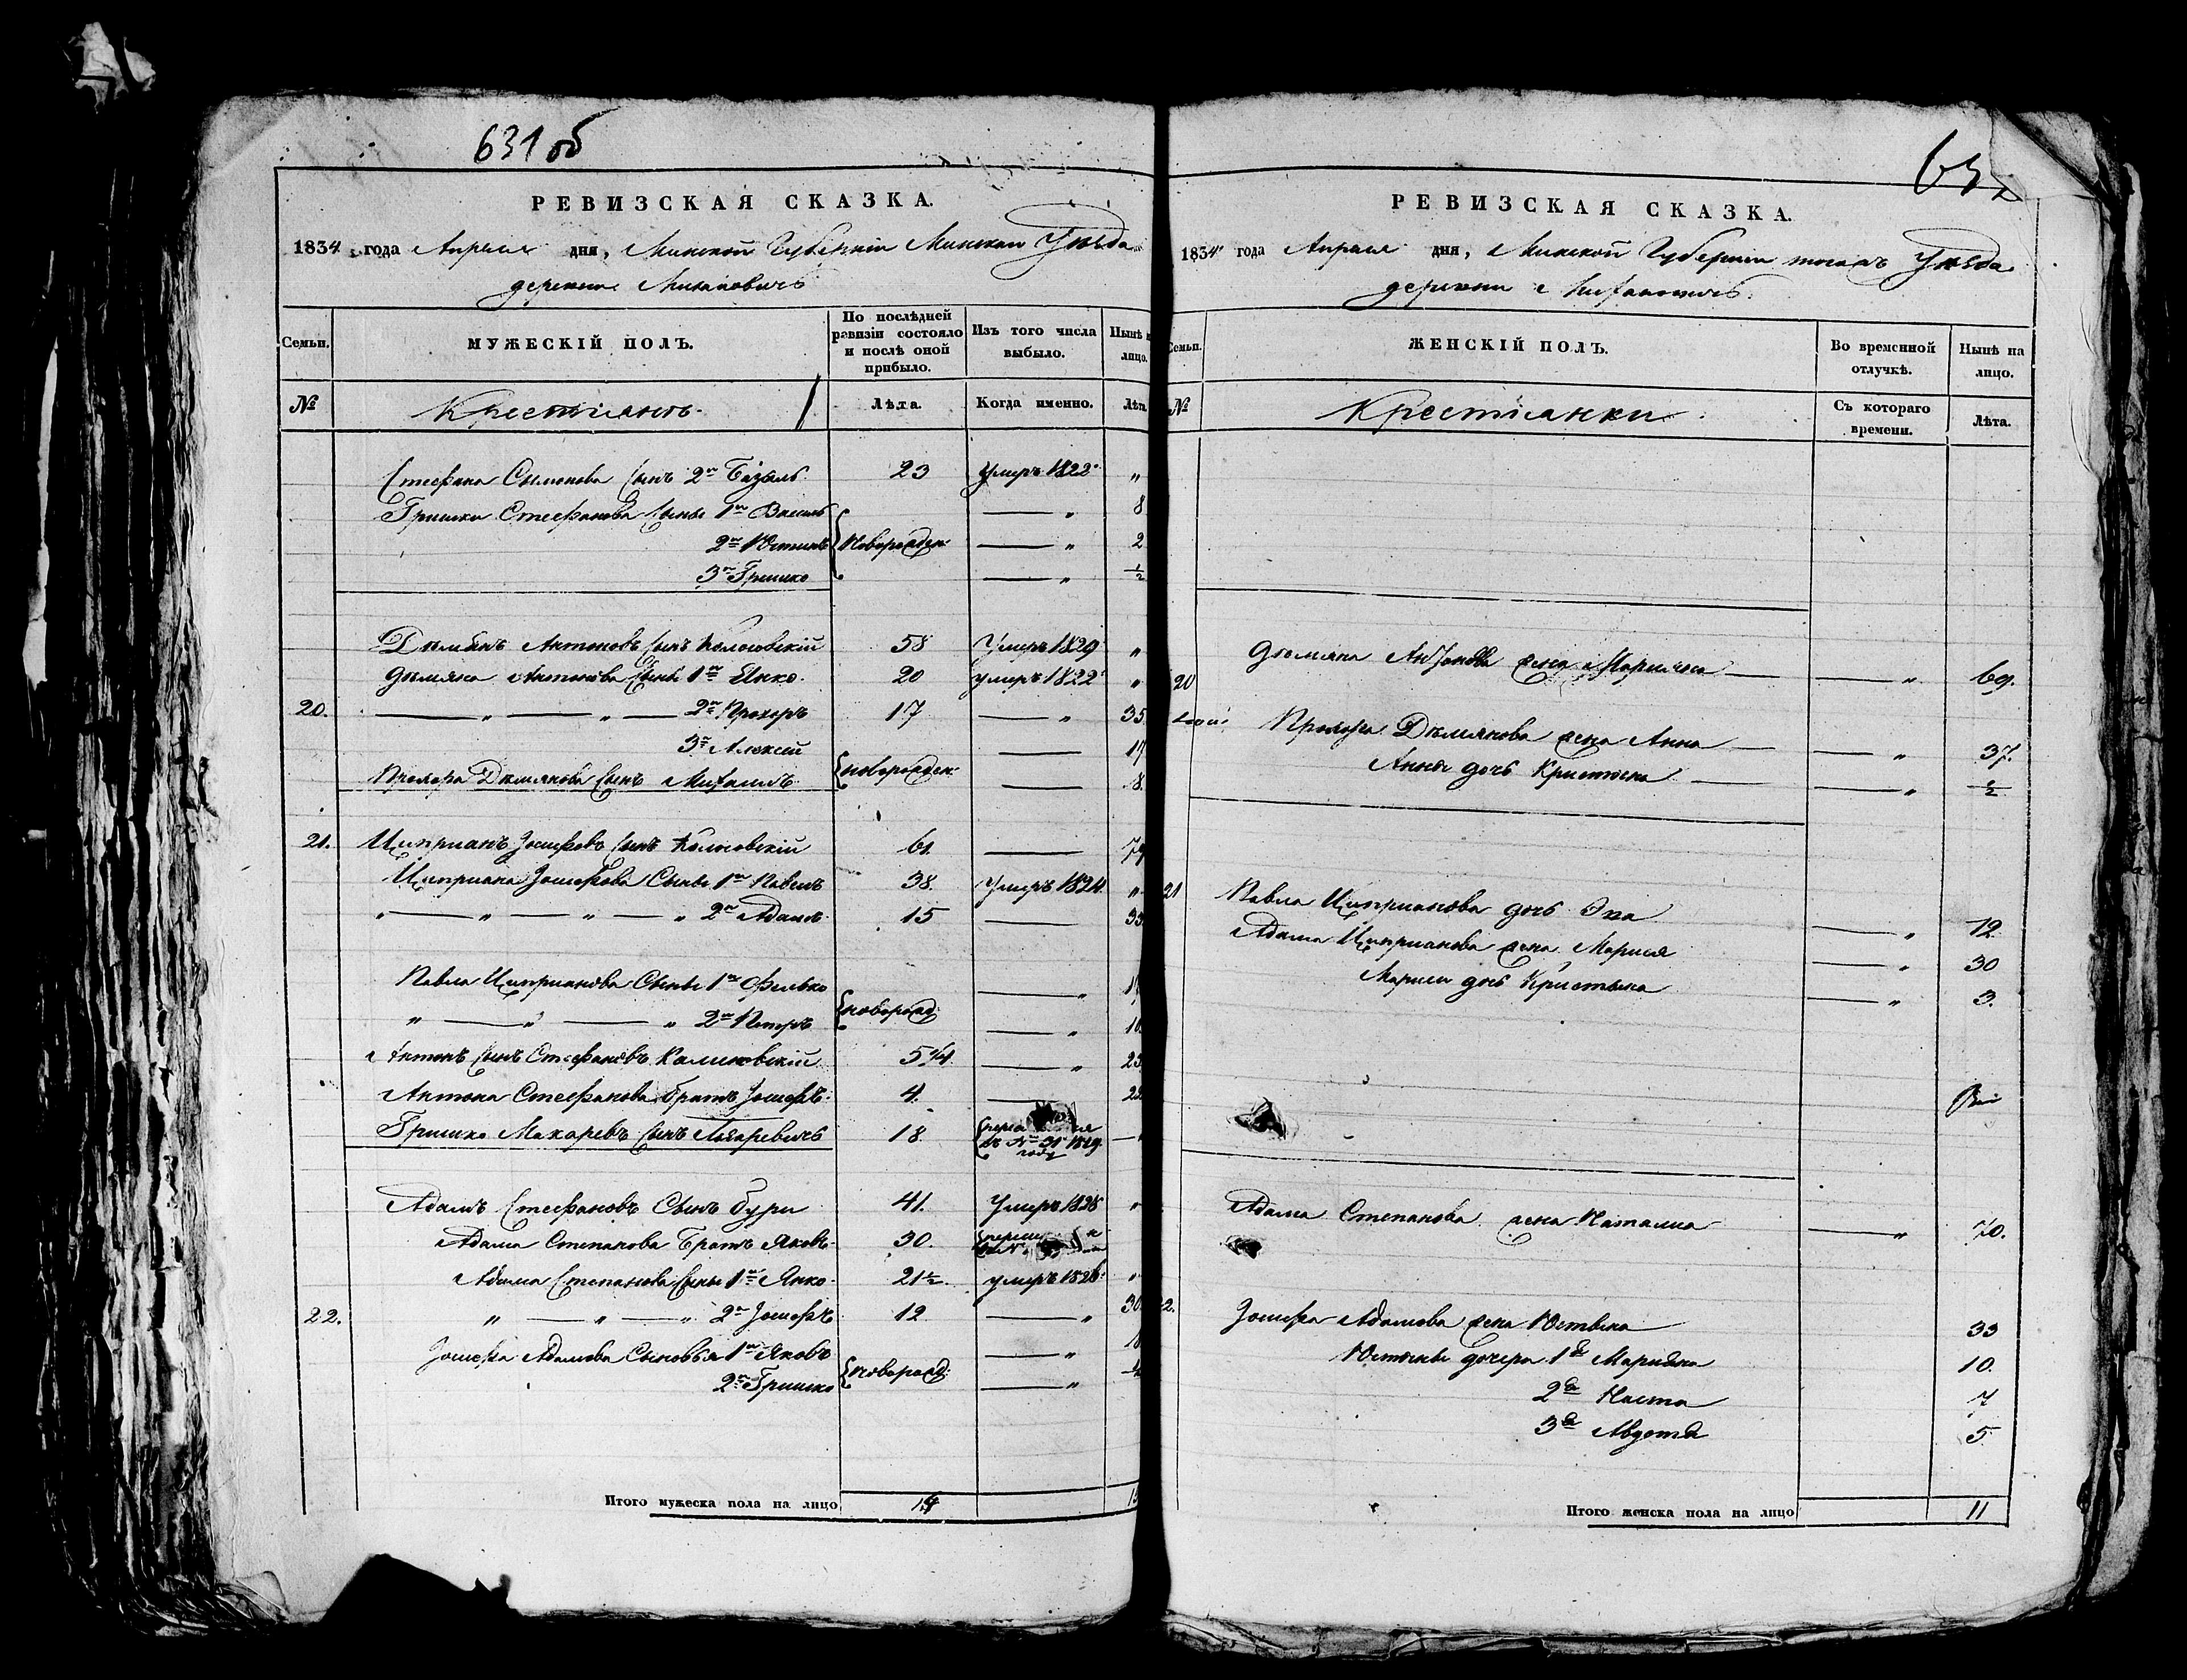 631 об
РЕВИЗСКАЯ СКАЗКА.
1834 года Апреля дня, Минской Губерніи Минскаго Уѣзда
деревни
Семьи.
МУЖЕСКІЙ ПОЛЪ.
По послѣдней ревизіи состояло и послѣ оной прибыло.
Изъ того числа выбыло.
Нынѣ на лицо.
№
Крестьянъ.
Лѣта.
Когда именно.
Лѣта.
Стефана Сымонова сынъ 2й Базыль 23 умеръ 1822 „
Гришки Стефанова сыны 1й Василь — „ 8
2й Юстинъ Новорожден: — „ 2
3й Гришко — „ ½
Дѣмьянъ Антоновъ сынъ 58 Умеръ 1829 „
Дѣмяна Антонова сыны 1й Янко 20 умеръ 1822 „
20. — „ — „ — 2й Прохоръ 17 — „ 35
3й Алексей — 17
Прохора Дѣмянова сынъ Михаилъ новорожден: — 8
21. Циприанъ Іосифовъ сынъ 61. — 79
Циприана Іосифова Сыны 1й Павелъ 38. Умеръ 1824 „
„ — „ — „ — „ 2й Адамъ 15 — 33
Павла Циприанова Сыны 1й Фелько —
„ — „ — „ 2й Петръ новорожд: — „ 10
Антонъ сынъ Стефановъ 5¾ — „ 23
Антона Стефанова братъ Іосифъ 4. — 22
Гришко Макаревъ сынъ 18. въ № 31 1829 году —
Адамъ Стефановъ Сынъ 41. Умеръ 1828 „
Адама Степанова Братъ Яковъ 30.
Адама Степанова сыны 1й Янко 21½ умеръ 1826 „
22. „ — „ — „ 2й Іосифъ 12 — „ 30
Іосифа Адамова Сыновья 1й Яковъ — „
2й Гришко новорожд: — „
Итого мужеска пола на лицо 14
632
РЕВИЗСКАЯ СКАЗКА.
1834 года Апреля дня, Минской Губерніи тогожъ Уѣзда
деревни
Семьи.
ЖЕНСКІЙ ПОЛЪ.
Во временной отлучкѣ.
Нынѣ на лицо.
№
Крестьянки
Съ котораго времени.
Лѣта.
20 Дѣмяна Антонова жена Марьяна — — „ 69.
Прохора Дѣмянова жена Анна — — „ 37.
Анны дочь Кристына — — „ ½
21 Павла Циприанова дочь Эва — „ 12
Адама Циприанова жена Марися — „ 30
Мариси дочь Кристына — „ 3.
Адама Степанова жена Наталиа — „ 70.
22. Іосифа Адамова жена Юстына 33
Юстыны дочери 1я Марьяна 10.
2я Наста 7
3я Авдотья 5
Итого женска пола на лицо 11